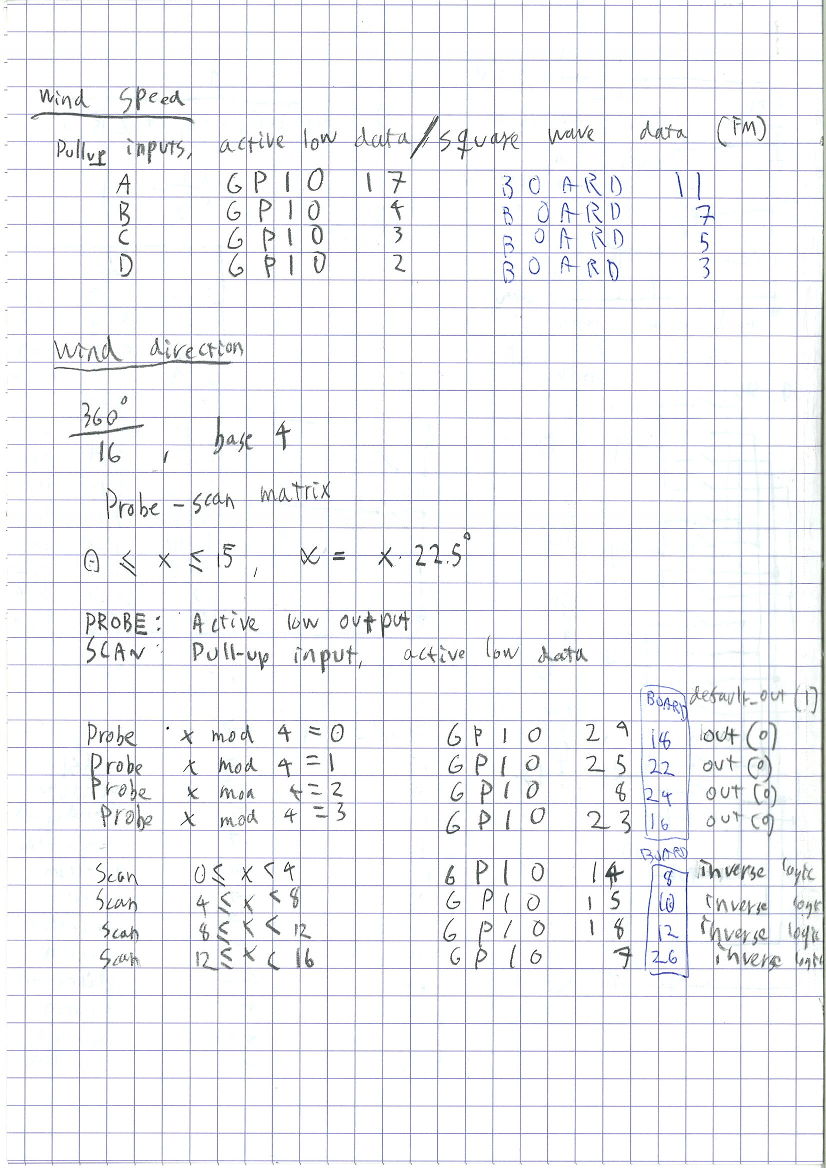 Wind speed
Pullup inputs, active low data / square wave data (FM)
A GPIO 17 BOARD 11
B GPIO 4 BOARD 7
C GPIO 3 BOARD 5
D GPIO 2 BOARD 3
Wind direction
360°
16 , base 4
Probe-scan matrix
0 ≤ x ≤ 15, α = x·22.5°
PROBE: Active low output
SCAN: Pull-up input, active low data
BOARD default_out(1)
Probe x mod 4 = 0 GPIO 24 18 out(0)
Probe x mod 4 = 1 GPIO 25 22 out(0)
Probe x mod 4 = 2 GPIO 8 24 out(0)
Probe x mod 4 = 3 GPIO 23 16 out(0)
BOARD
Scan 0 ≤ x < 4 GPIO 14 8 inverse logic
Scan 4 ≤ x < 8 GPIO 15 10 inverse logic
Scan 8 ≤ x < 12 GPIO 18 12 inverse logic
Scan 12 ≤ x < 16 GPIO 7 26 inverse logic